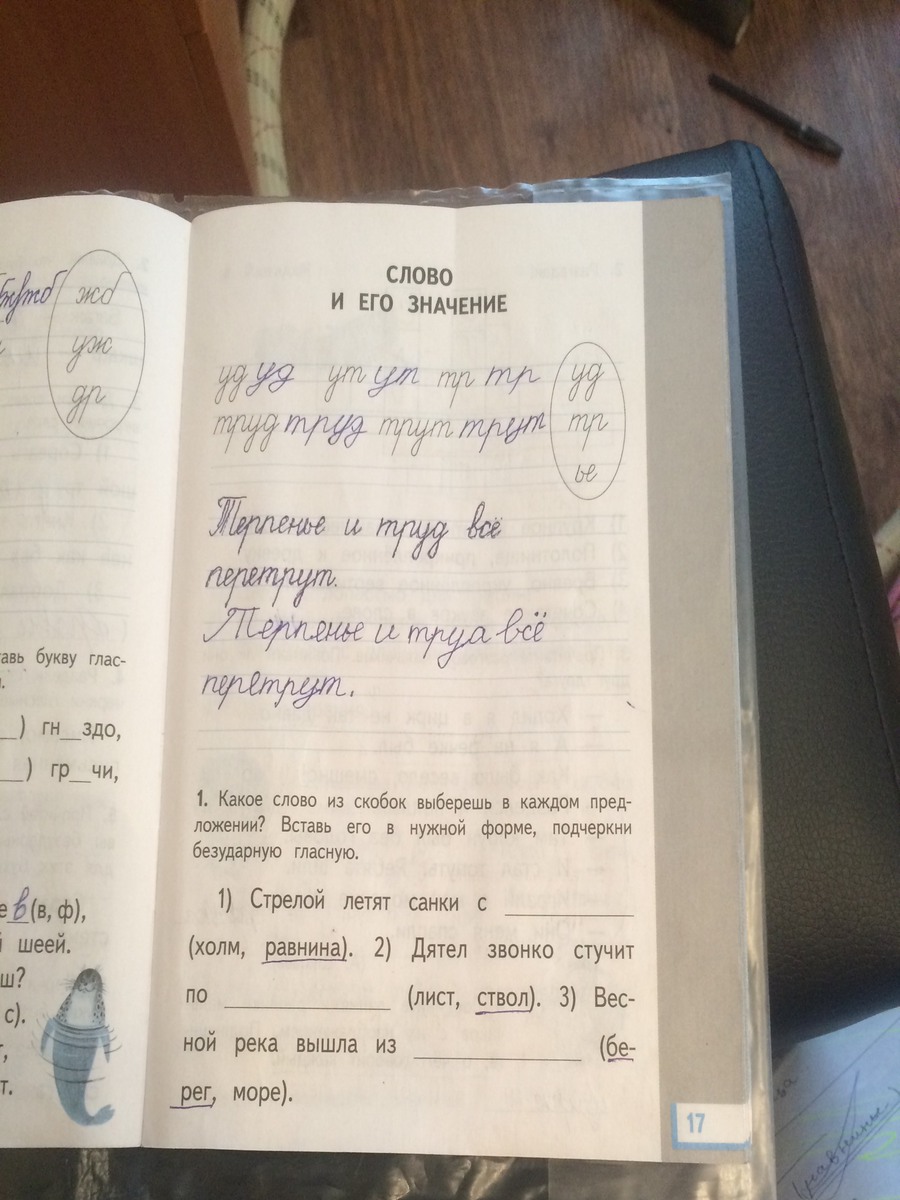 жб
уж
др
тавь букву глас-
) гн__здо,
) гр__чи,
в (в, ф),
шеей.
ш?
с).
т.
СЛОВО
И ЕГО ЗНАЧЕНИЕ
уд уд ут ут тр тр
труд труд трут трут
уд
тр
ье
Терпенье и труд всё
перетрут.
Терпянье и труа всё
перетрут.
1. Какое слово из скобок выберешь в каждом пред-
ложении? Вставь его в нужной форме, подчеркни
безударную гласную.
1) Стрелой летят санки с __________
(холм, равнина). 2) Дятел звонко стучит
по __________ (лист, ствол). 3) Вес-
ной река вышла из __________ (бе-
рег, море).
17